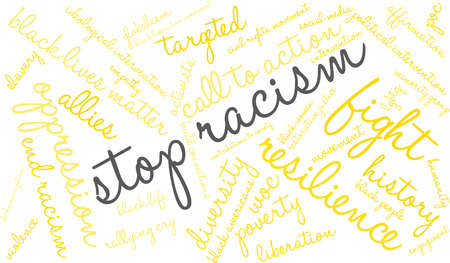 stop racism
black lives matter
slavery
oppression
end racism
allies
targeted
call to action
fight
resilience
history
diversity
woc
poverty
liberation
black life
rallying cry
violence
black americans
movement
black people
humanity
affirmation
social media
civil rights movement
ideological intervention
political intervention